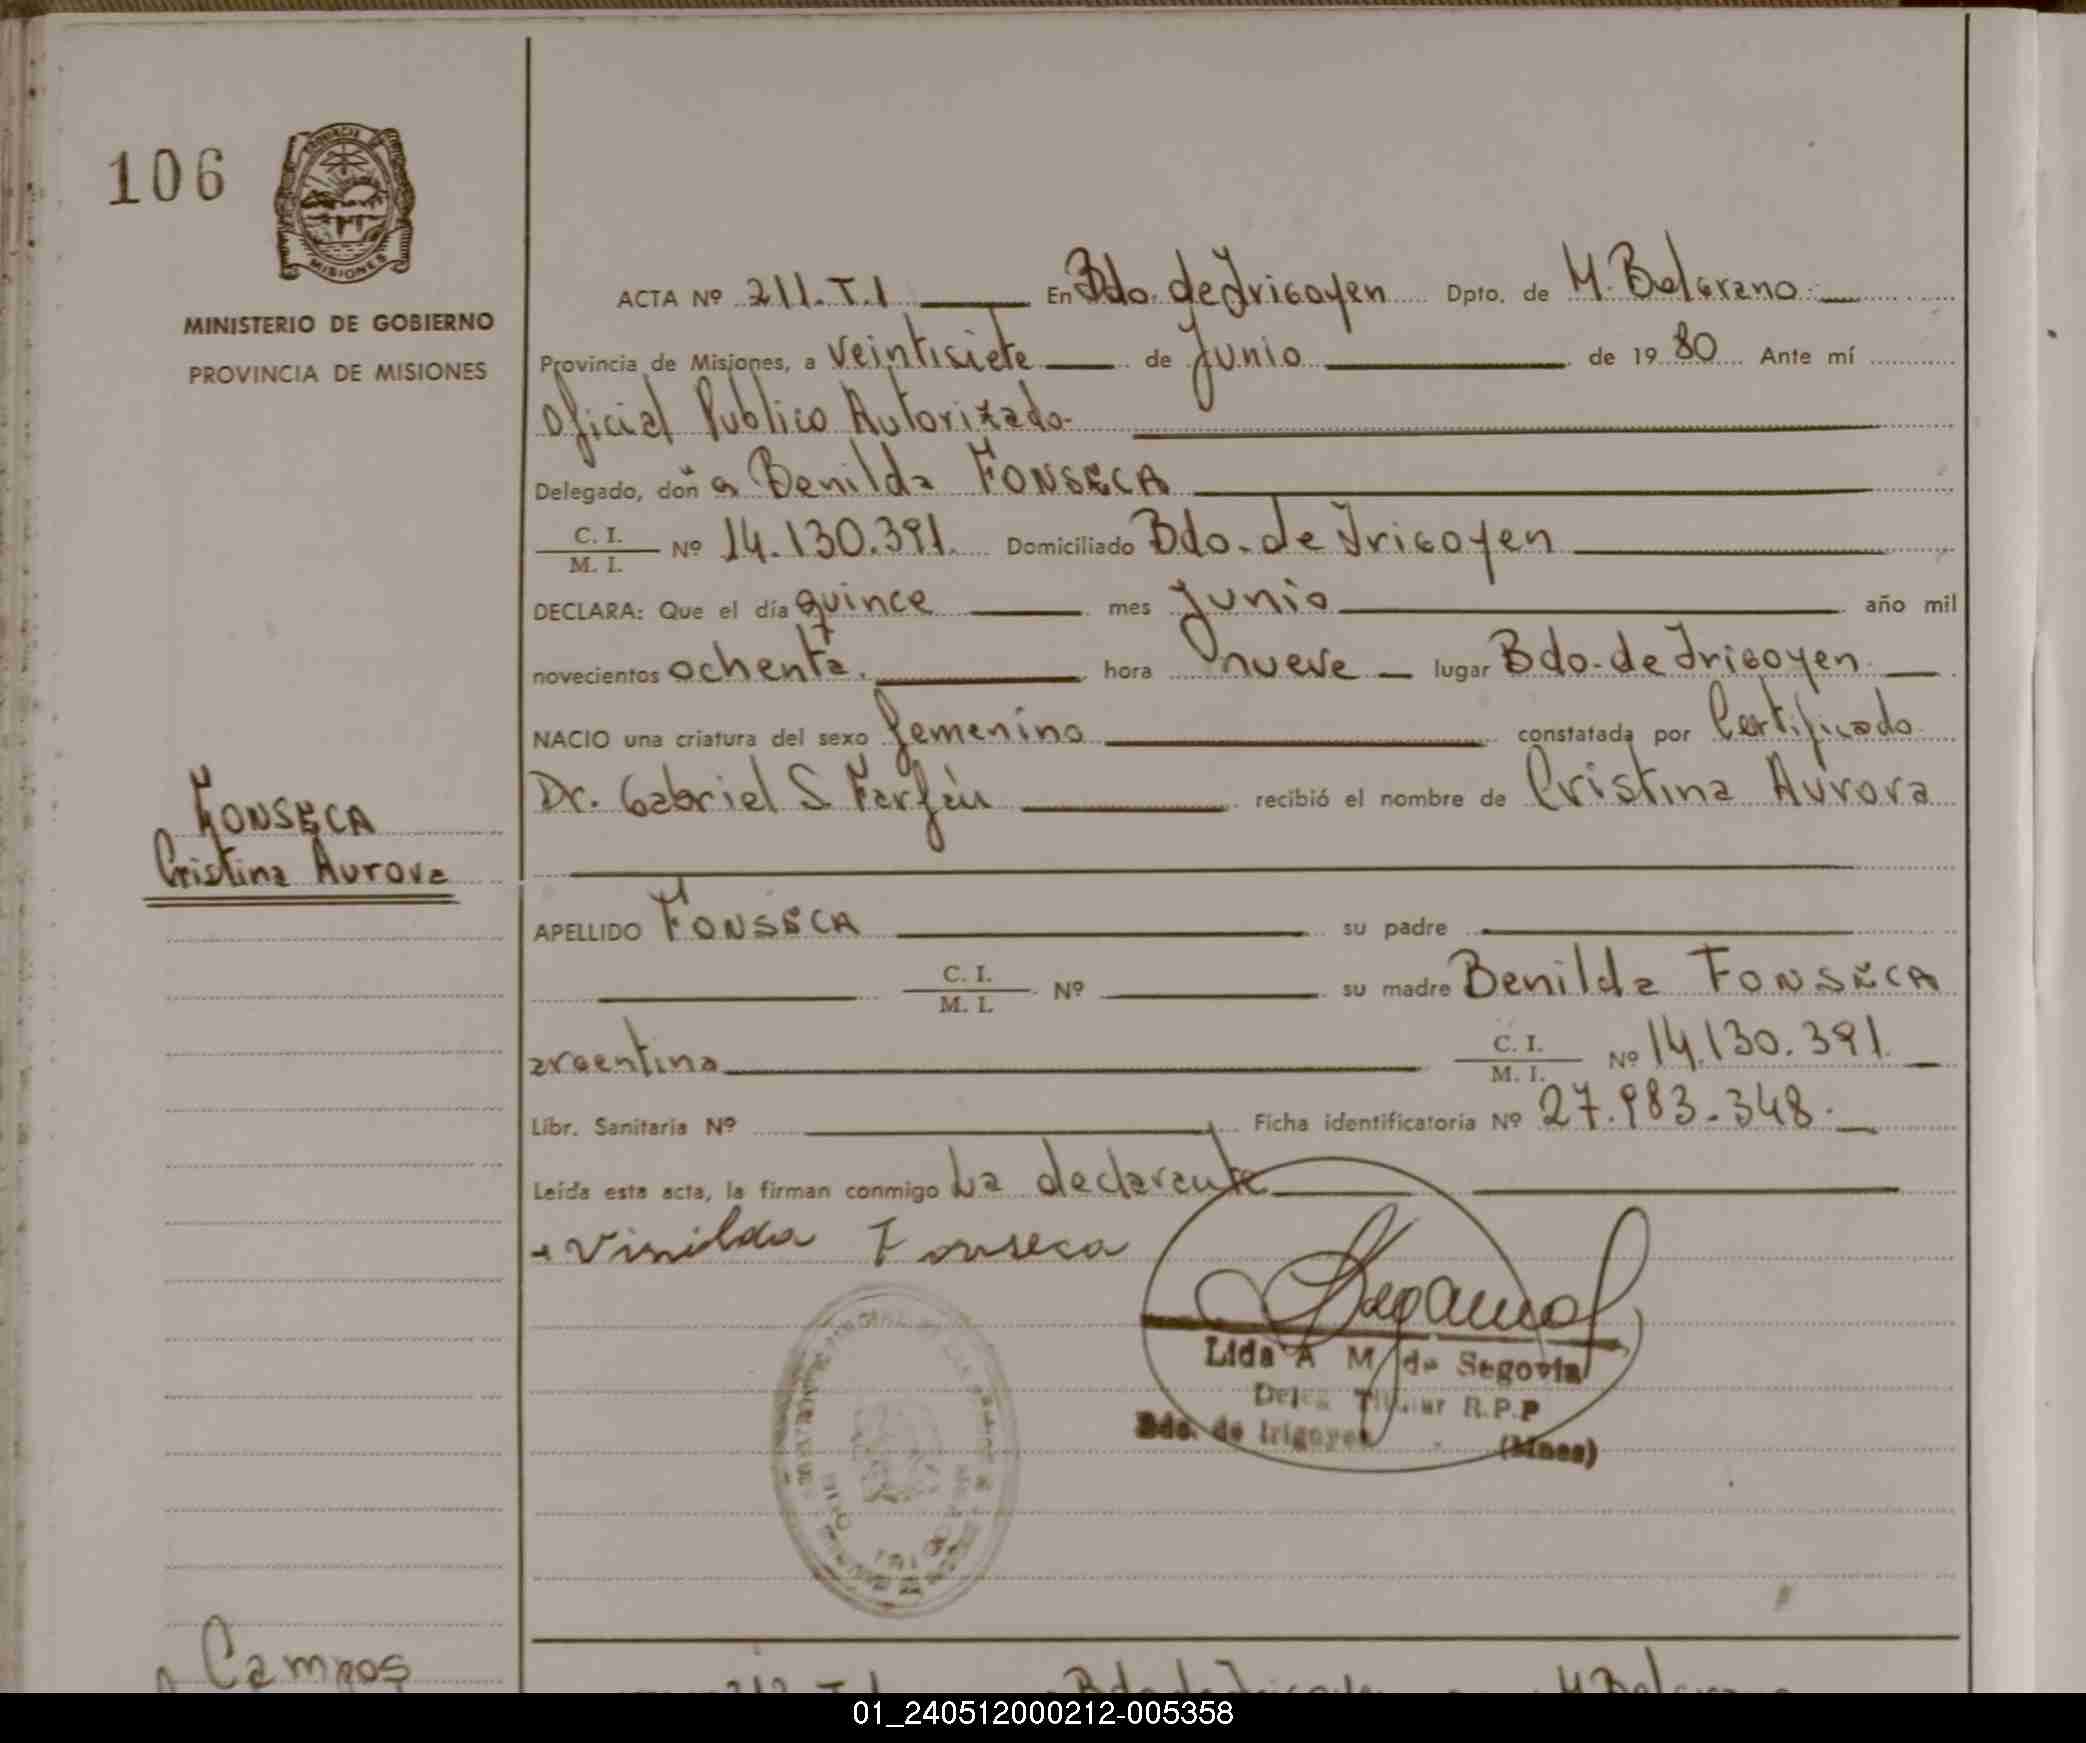 106
PROVINCIA DE
MISIONES
MINISTERIO DE GOBIERNO
PROVINCIA DE MISIONES
ACTA Nº 211.T.I En Bdo. de Irigoyen Dpto. de M. Belgrano
Provincia de Misiones, a veintisiete de Junio de 1980 Ante mí
Oficial Publico Autorizado
Delegado, doña Benilda FONSECA
C. I.
M. I. Nº 14.130.391. Domiciliado Bdo. de Irigoyen
DECLARA: Que el día quince mes junio año mil
novecientos ochenta. hora nueve lugar Bdo. de Irigoyen
NACIO una criatura del sexo femenino constatada por Certificado
Dr. Gabriel S. Farfán recibió el nombre de Cristina Aurora
FONSECA
Cristina Aurora
APELLIDO FONSECA su padre
C. I.
M. I. Nº su madre Benilda FONSECA
argentina C. I.
M. I. Nº 14.130.391.
Libr. Sanitaria Nº Ficha identificatoria Nº 27.983.348.
Leída esta acta, la firman conmigo La declarante
Vinilda Fonseca
Lida A M de Segovia
Deleg Titular R.P.P
Bdo. de Irigoyen (Mnes)
Campos
212 T.I Bdo de Irigoyen M Belgrano
01_240512000212-005358